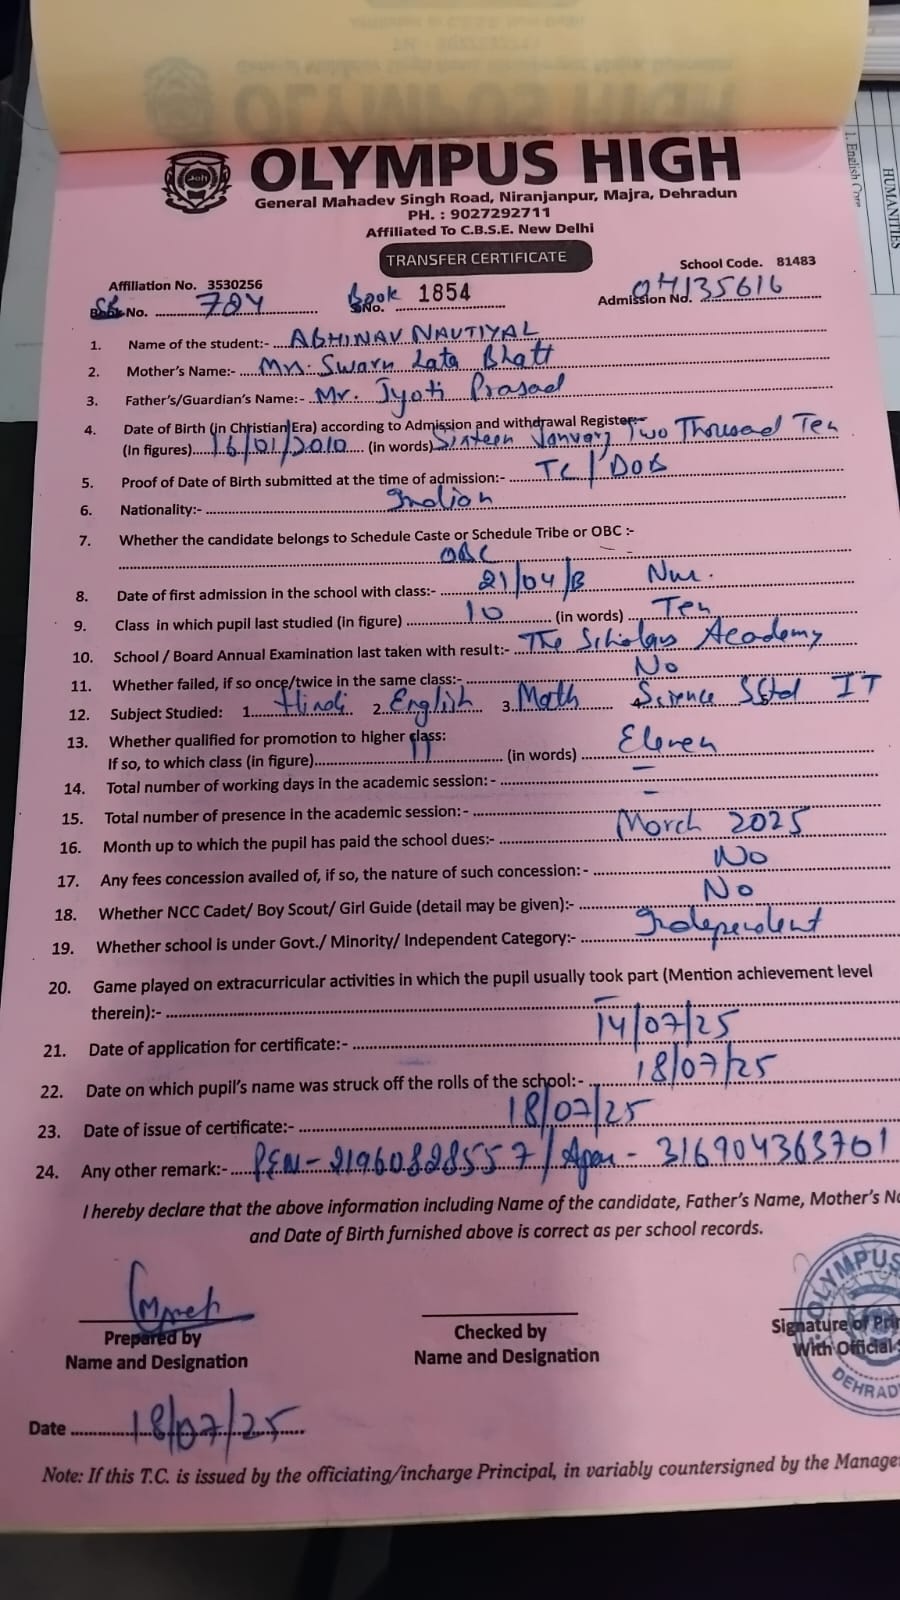 OLYMPUS HIGH
General Mahadev Singh Road, Niranjanpur, Majra, Dehradun
PH. : 9027292711
Affiliated To C.B.S.E. New Delhi
TRANSFER CERTIFICATE
Affiliation No. 3530256
School Code. 81483
No. 784
Book No. 1854
Admission No. 04135616
1. Name of the student:- ABHINAV NAUTIYAL
2. Mother's Name:- Mrs. Swarn Lata Bhatt
3. Father's/Guardian's Name:- Mr. Jyoti Prasad
4. Date of Birth (in Christian Era) according to Admission and withdrawal Register:-
(In figures) 16/01/2010 (in words) Sixteen January Two Thousand Ten
5. Proof of Date of Birth submitted at the time of admission:- TC / DOB
6. Nationality:- Indian
7. Whether the candidate belongs to Schedule Caste or Schedule Tribe or OBC :-
OBC
8. Date of first admission in the school with class:- 21/04/13 Nur.
9. Class in which pupil last studied (in figure) 10 (in words) Ten
10. School / Board Annual Examination last taken with result:- The Scholars Academy
11. Whether failed, if so once/twice in the same class:- No
12. Subject Studied: 1. Hindi 2. English 3. Math 4. Science SStd IT
13. Whether qualified for promotion to higher class:
If so, to which class (in figure) 11 (in words) Eleven
14. Total number of working days in the academic session: - –
15. Total number of presence in the academic session:- –
16. Month up to which the pupil has paid the school dues:- March 2025
17. Any fees concession availed of, if so, the nature of such concession: - No
18. Whether NCC Cadet/ Boy Scout/ Girl Guide (detail may be given):- No
19. Whether school is under Govt./ Minority/ Independent Category:- Independent
20. Game played on extracurricular activities in which the pupil usually took part (Mention achievement level
therein):- –
21. Date of application for certificate:- 14/07/25
22. Date on which pupil's name was struck off the rolls of the school:- 18/07/25
23. Date of issue of certificate:- 18/07/25
24. Any other remark:- PEN-21960828557 / Apaar - 316904363701
I hereby declare that the above information including Name of the candidate, Father's Name, Mother's Na
and Date of Birth furnished above is correct as per school records.
Prepared by
Name and Designation
Checked by
Name and Designation
Signature of Prin
With Official
OLYMPUS
DEHRAD
Date 18/07/25
Note: If this T.C. is issued by the officiating/incharge Principal, in variably countersigned by the Manage
1. English Core
HUMANITIES